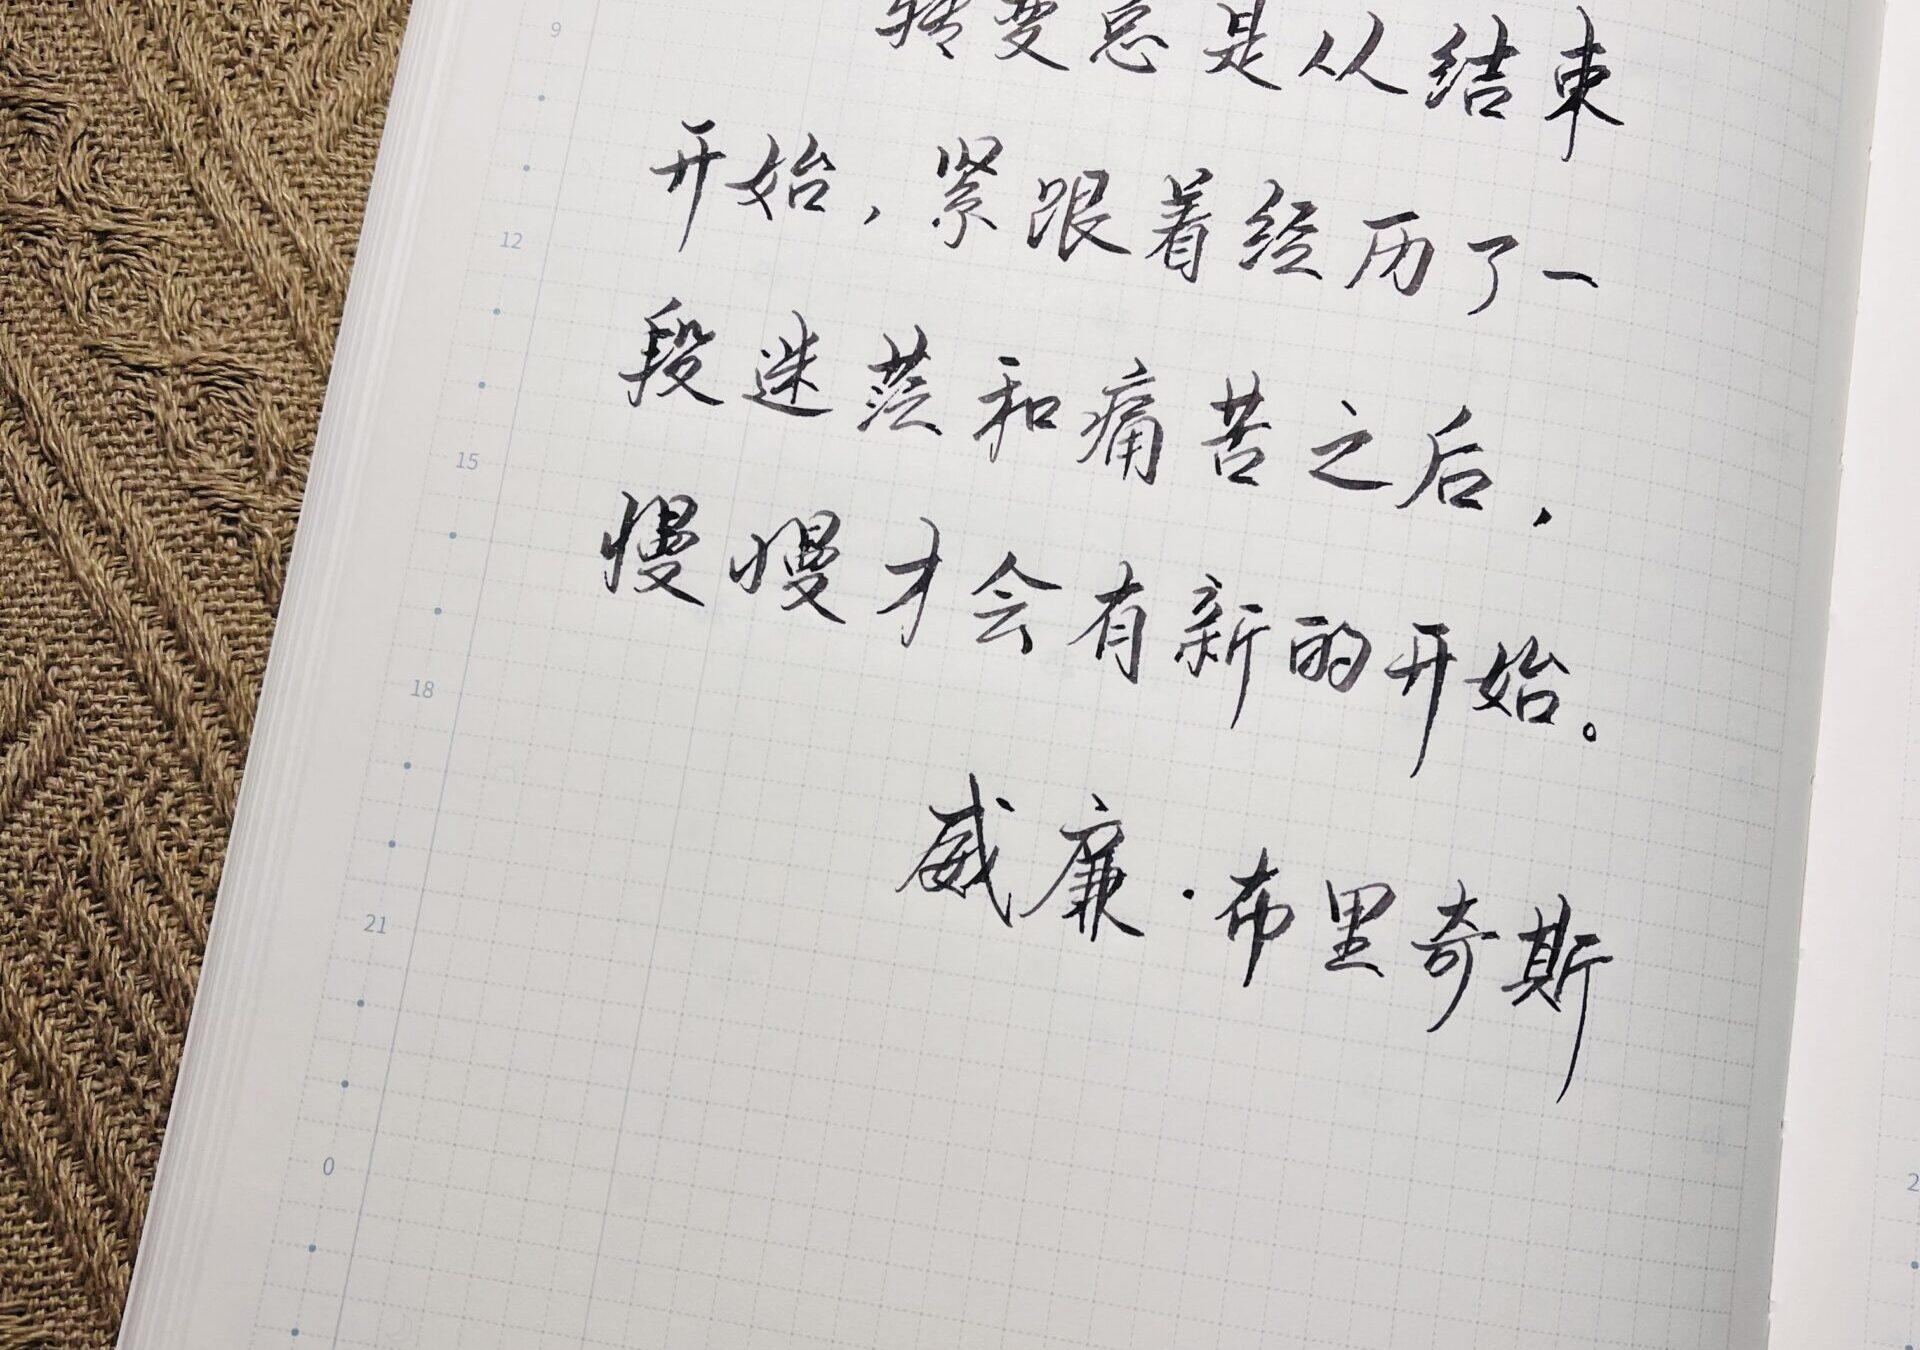 9
转变总是从结束
开始，紧跟着经历了一
12
段迷茫和痛苦之后，
15
慢慢才会有新的开始。
18
威廉·布里奇斯
21
0
2